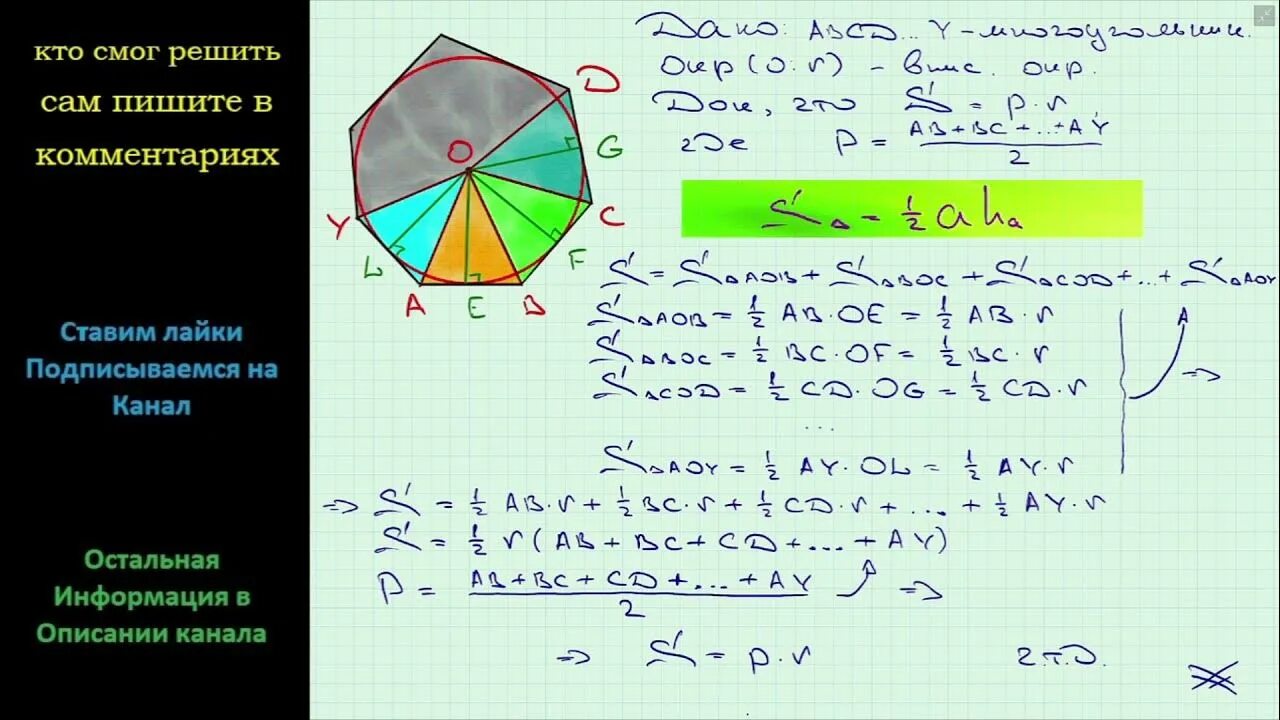 кто смог решить
сам пишите в
комментариях
Ставим лайки
Подписываемся на
Канал
Остальная
Информация в
Описании канала
D
O
G
Y
C
L
F
A
E
B
Дано: ABCD...Y-многоугольник.
Окр(O;r) - впис. окр.
Док, что S = p·r,
где p = (AB+BC+...+AY)/2
S△ = 1/2 a hₐ
S = S△AOB + S△BOC + S△COD + ... + S△AOY
S△AOB = 1/2 AB·OE = 1/2 AB·r
S△BOC = 1/2 BC·OF = 1/2 BC·r
S△COD = 1/2 CD·OG = 1/2 CD·r
...
S△AOY = 1/2 AY·OL = 1/2 AY·r
=>
=> S = 1/2 AB·r + 1/2 BC·r + 1/2 CD·r + ... + 1/2 AY·r
S = 1/2 r (AB + BC + CD + ... + AY)
P = (AB+BC+CD+...+AY)/2 =>
=> S = p·r ч.т.д.